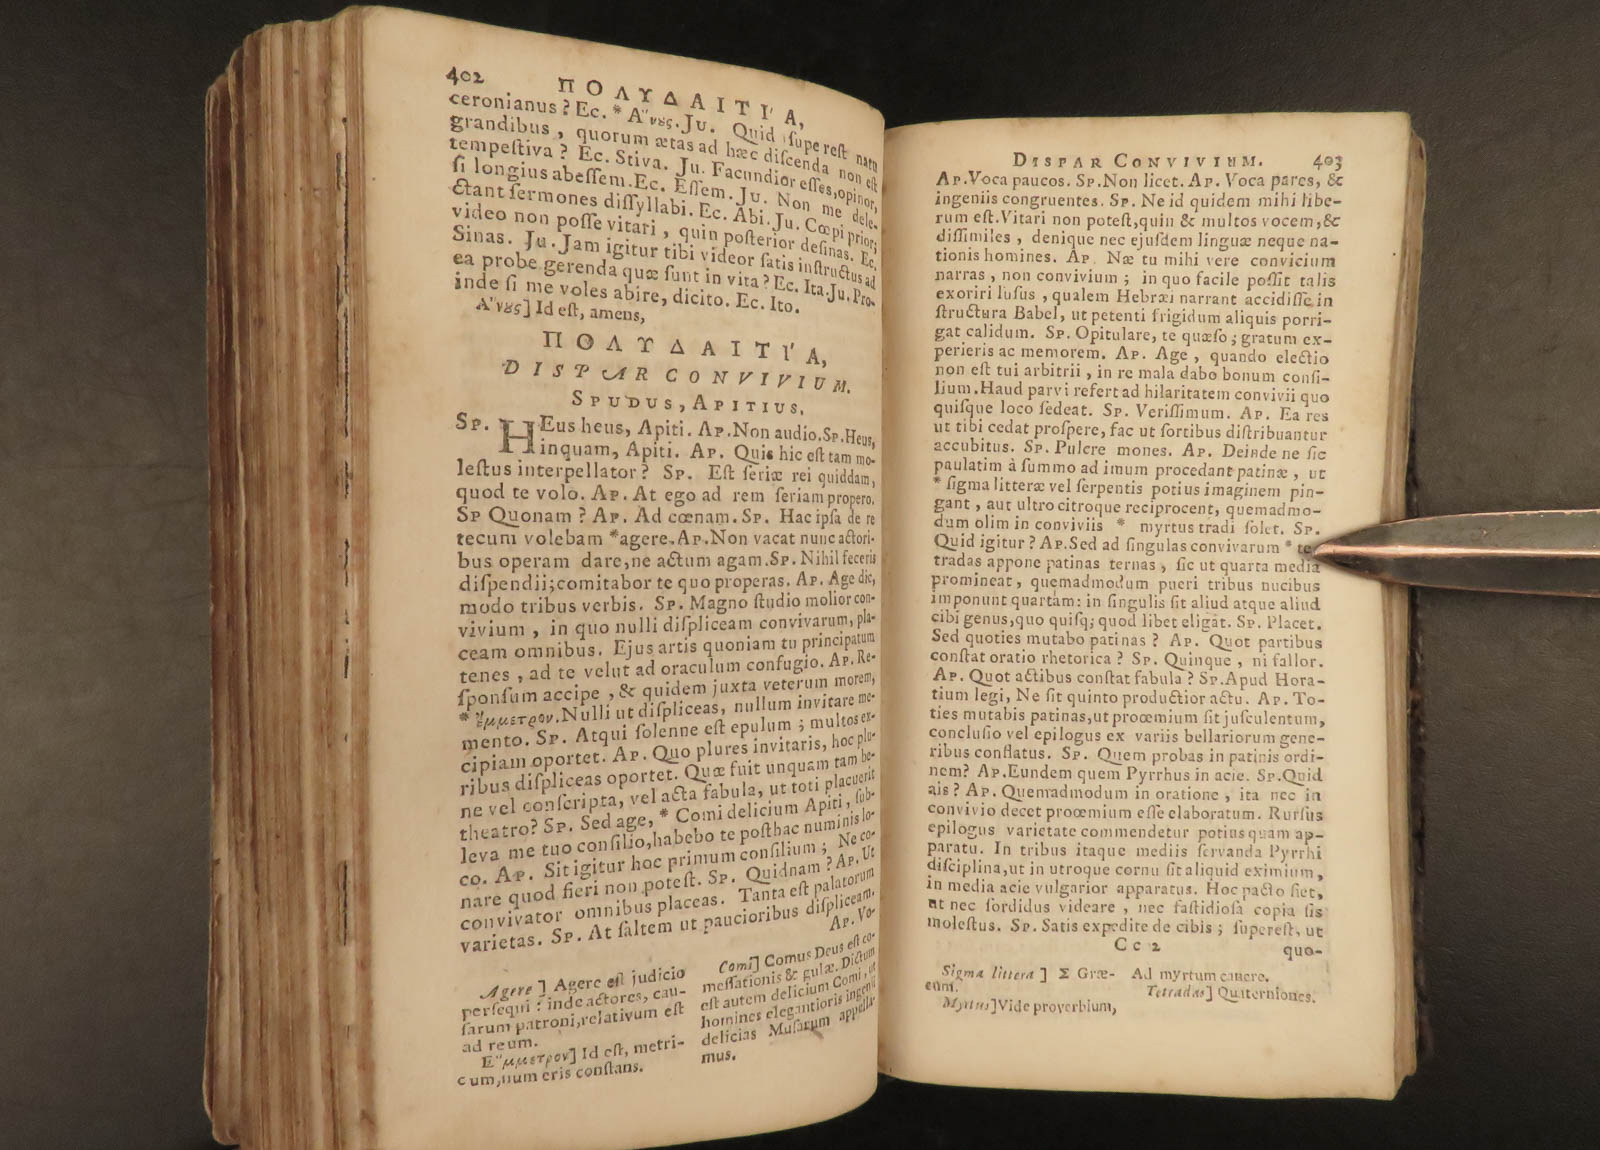 402
ΠΟΛΥΔΑΙΤΙ'Α,
ceronianus? Ec. * Α῎νȣς. Ju. Quid ſupereſt natu
grandibus, quorum ætas ad hæc diſcenda non eſt
tempeſtiva? Ec. Stiva. Ju. Facundior eſſes, opinor,
ſi longius abeſſem. Ec. Eſſem. Ju. Non me dele-
ctant ſermones diſſyllabi. Ec. Abi. Ju. Cœpi prior;
video non poſſe vitari, quin poſterior deſinas. Ec.
Sinas. Ju. Jam igitur tibi videor ſatis inſtructus ad
ea probe gerenda quæ ſunt in vita? Ec. Ita. Ju. Pro-
inde ſi me voles abire, dicito. Ec. Ito.
Α῎νȣς] Id eſt, amens,
ΠΟΛΥΔΑΙΤΙ'Α,
DISPAR CONVIVIUM.
SPUDUS, APITIUS.
SP. HEus heus, Apiti. AP. Non audio. SP. Heus,
inquam, Apiti. AP. Quis hic eſt tam mo-
leſtus interpellator? SP. Eſt ſeriæ rei quiddam,
quod te volo. AP. At ego ad rem ſeriam propero.
SP Quonam? AP. Ad cœnam. SP. Hac ipſa de re
tecum volebam *agere. AP. Non vacat nunc actori-
bus operam dare, ne actum agam. SP. Nihil feceris
diſpendii; comitabor te quo properas. AP. Age dic,
modo tribus verbis. SP. Magno ſtudio molior con-
vivium, in quo nulli diſpliceam convivarum, pla-
ceam omnibus. Ejus artis quoniam tu principatum
tenes, ad te velut ad oraculum confugio. AP. Re-
ſponſum accipe, & quidem juxta veterum morem,
* ἔμμετρον. Nulli ut diſpliceas, nullum invitare me-
mento. SP. Atqui ſolenne eſt epulum; multos ex-
cipiam oportet. AP. Quo plures invitaris, hoc plu-
ribus diſpliceas oportet. Quæ fuit unquam tam be-
ne vel conſcripta, vel acta fabula, ut toti placuerit
theatro? SP. Sed age, * Comi delicium Apiti, ſub-
leva me tuo conſilio, habebo te poſthac numinis lo-
co. AP. Sit igitur hoc primum conſilium; Ne co-
nare quod fieri non poteſt. SP. Quidnam? AP. Ut
convivator omnibus placeas. Tanta eſt palatorum
varietas. SP. At ſaltem ut paucioribus diſpliceam.
AP. Vo-
Agere] Agere eſt judicio
perſequi: inde actores, cau-
ſarum patroni, relativum eſt
ad reum.
Ε῎μμετρον] Id eſt, metri-
cum, numeris conſtans.
Comi] Comus Deus eſt co-
meſſationis & gulæ. Dictum
eſt autem delicium Comi, ut
homines elegantioris ingenii
delicias Muſarum appella-
mus.
DISPAR CONVIVIUM. 403
AP. Voca paucos. SP. Non licet. AP. Voca pares, &
ingeniis congruentes. SP. Ne id quidem mihi libe-
rum eſt. Vitari non poteſt, quin & multos vocem, &
diſſimiles, denique nec ejuſdem linguæ neque na-
tionis homines. AP. Næ tu mihi vere convicium
narras, non convivium; in quo facile poſſit talis
exoriri luſus, qualem Hebræi narrant accidiſſe in
ſtructura Babel, ut petenti frigidum aliquis porri-
gat calidum. SP. Opitulare, te quæſo; gratum ex-
perieris ac memorem. AP. Age, quando electio
non eſt tui arbitrii, in re mala dabo bonum conſi-
lium. Haud parvi refert ad hilaritatem convivii quo
quiſque loco ſedeat. SP. Veriſſimum. AP. Ea res
ut tibi cedat proſpere, fac ut ſortibus diſtribuantur
accubitus. SP. Pulcre mones. AP. Deinde ne ſic
paulatim à ſummo ad imum procedant patinæ, ut
* ſigma litteræ vel ſerpentis potius imaginem pin-
gant, aut ultro citroque reciprocent, quemadmo-
dum olim in conviviis * myrtus tradi ſolet. SP.
Quid igitur? AP. Sed ad ſingulas convivarum * te-
tradas appone patinas ternas, ſic ut quarta media
promineat, quemadmodum pueri tribus nucibus
imponunt quartam: in ſingulis ſit aliud atque aliud
cibi genus, quo quiſq; quod libet eligat. SP. Placet.
Sed quoties mutabo patinas? AP. Quot partibus
conſtat oratio rhetorica? SP. Quinque, ni fallor.
AP. Quot actibus conſtat fabula? SP. Apud Hora-
tium legi, Ne ſit quinto productior actu. AP. To-
ties mutabis patinas, ut procemium ſit juſculentum,
concluſio vel epilogus ex variis bellariorum gene-
ribus conflatus. SP. Quem probas in patinis ordi-
nem? AP. Eundem quem Pyrrhus in acie. SP. Quid
ais? AP. Quemadmodum in oratione, ita nec in
convivio decet proœmium eſſe elaboratum. Rurſus
epilogus varietate commendetur potius quam ap-
paratu. In tribus itaque mediis ſervanda Pyrrhi
diſciplina, ut in utroque cornu ſit aliquid eximium,
in media acie vulgarior apparatus. Hoc pacto fiet,
ut nec ſordidus videare, nec faſtidioſa copia ſis
moleſtus. SP. Satis expedite de cibis; ſupereſt, ut
Cc 2 quo-
Sigma littera] Σ Græ-
cum.
Myrtus] Vide proverbium,
Ad myrtum canere.
Tetradas] Quaterniones.